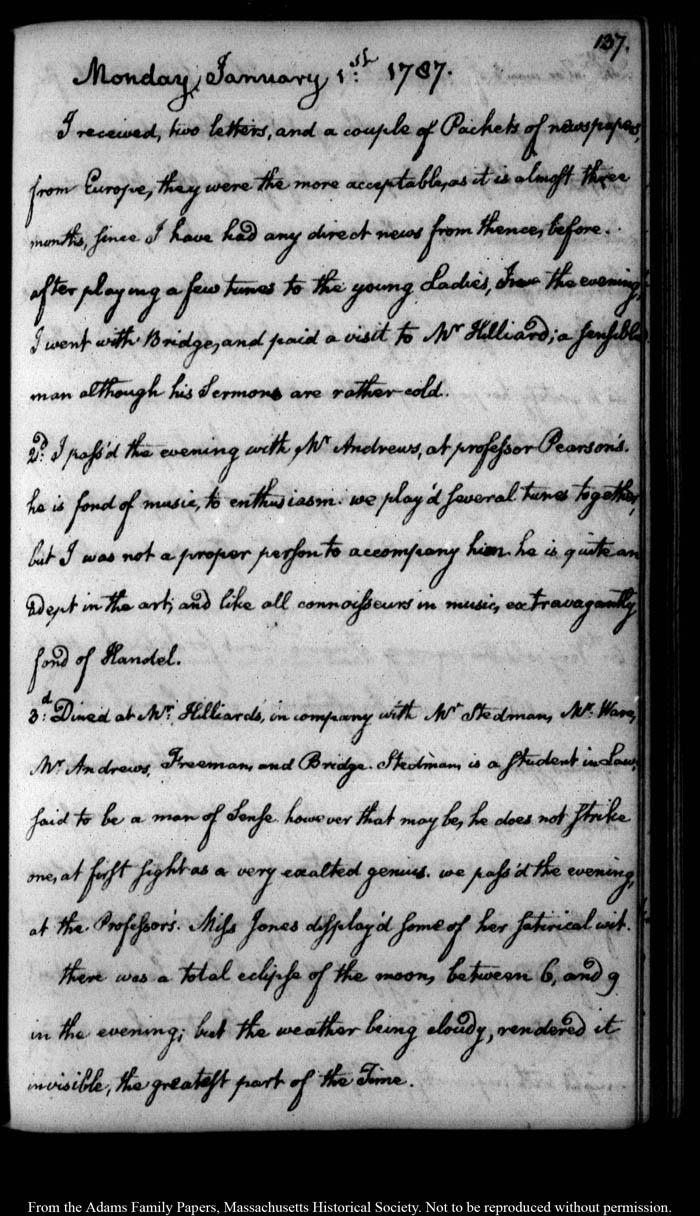 137.
Monday, January 1st: 1787.
I received, two letters, and a couple of Packets of newspapers,
from Europe, they were the more acceptable, as it is almost three
months, since I have had any direct news from thence, before.
after playing a few tunes to the young Ladies, the evening,
I went with Bridge, and paid a visit to Mr Hilliard; a sensible
man although his Sermons are rather cold.
2d: I pass'd the evening with, Mr Andrews, at professor Pearson's.
he is fond of music, to enthusiasm. we play'd several tunes together,
but I was not a proper person to accompany him. he is quite an
adept in the art; and like all connoisseurs in music, extravagantly
fond of Handel.
3d: Dined at Mr. Hilliard's, in company with Mr Stedman, Mr. Ware,
Mr Andrews, Freeman, and Bridge. Stedman, is a student in Law,
said to be a man of Sense. however that may be, he does not strike
one, at first sight as a very exalted genius. we pass'd the evening,
at the Professor's. Miss Jones display'd some of her satirical wit.
there was a total eclipse of the moon, between 6, and 9
in the evening; but the weather being cloudy, rendered it
invisible, the greatest part of the Time.
From the Adams Family Papers, Massachusetts Historical Society. Not to be reproduced without permission.